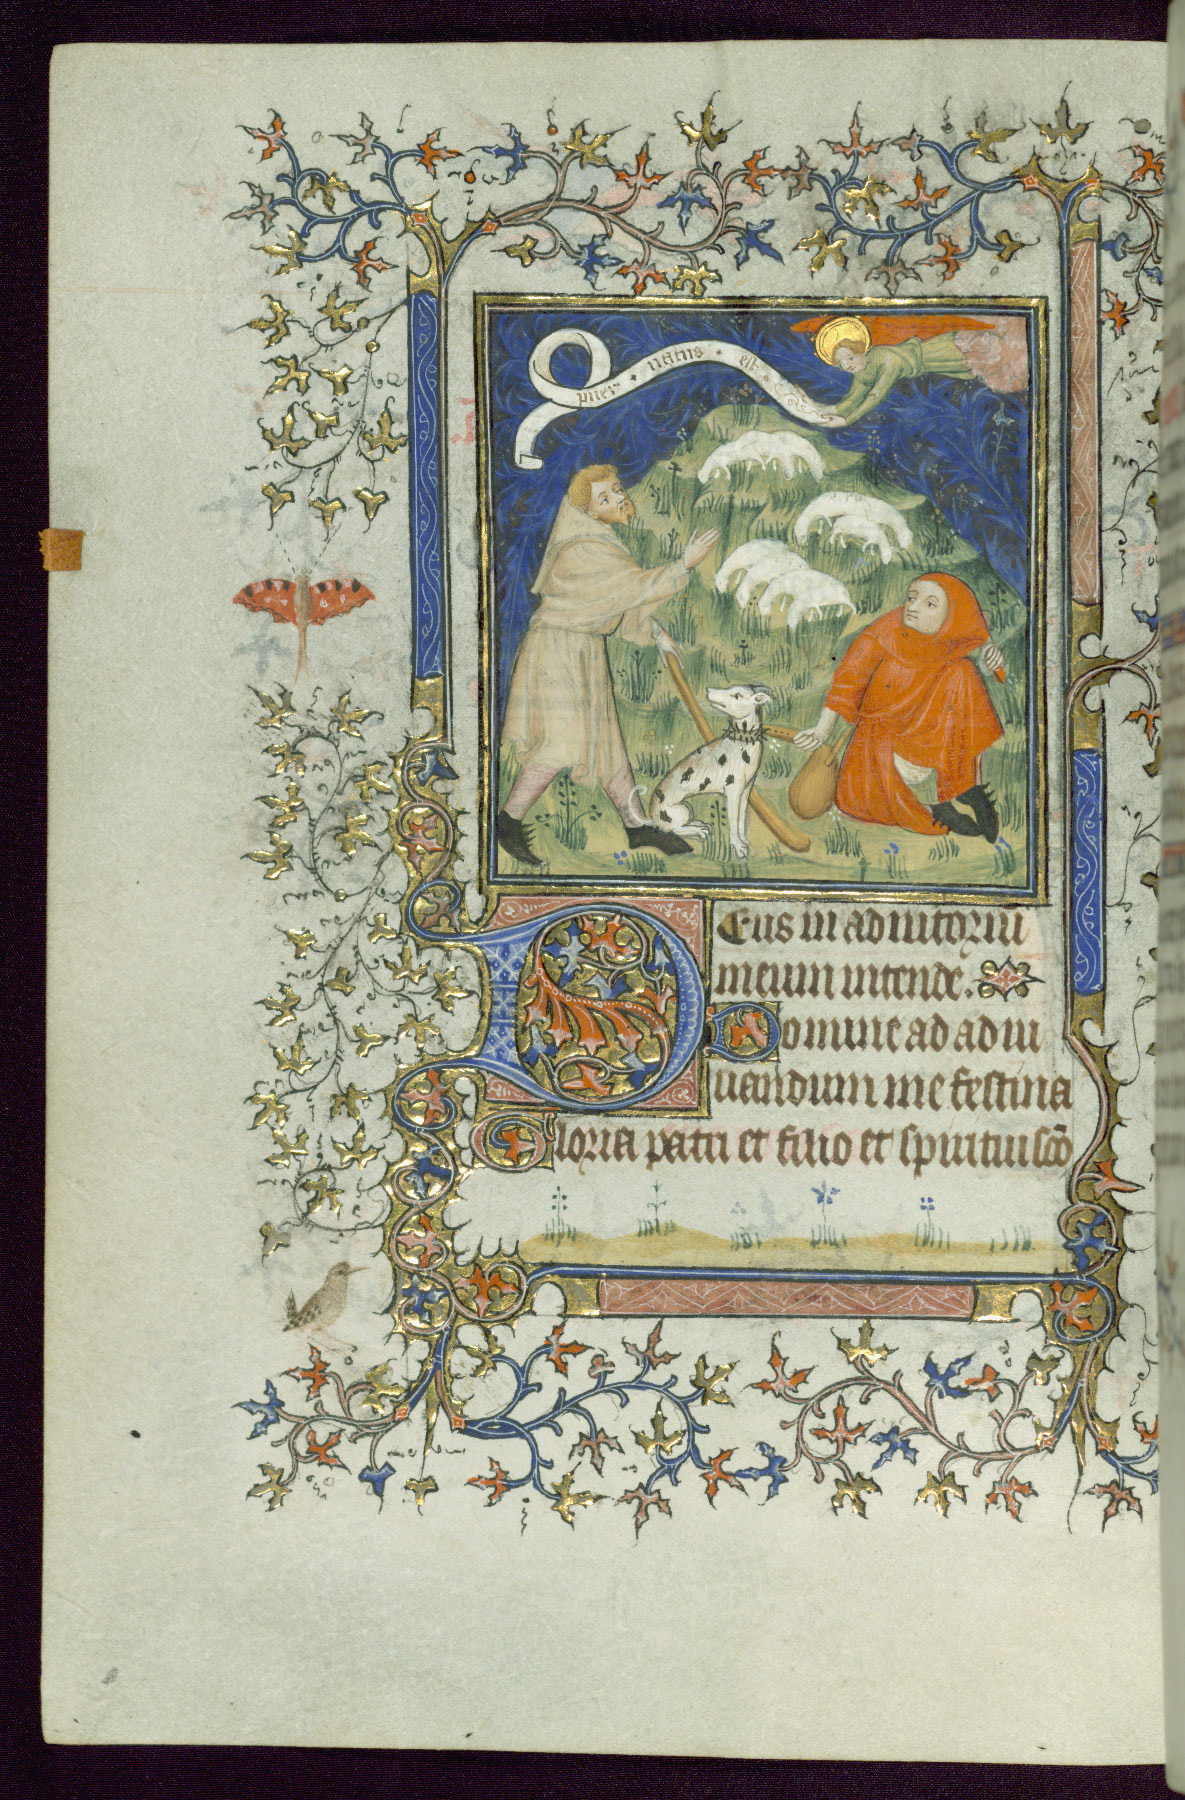 puer · natus · est ·
Deus in adiutoriu
meum intende.
Domine ad adiu
uandum me festina
Gloria patri et filio et spiritui sco